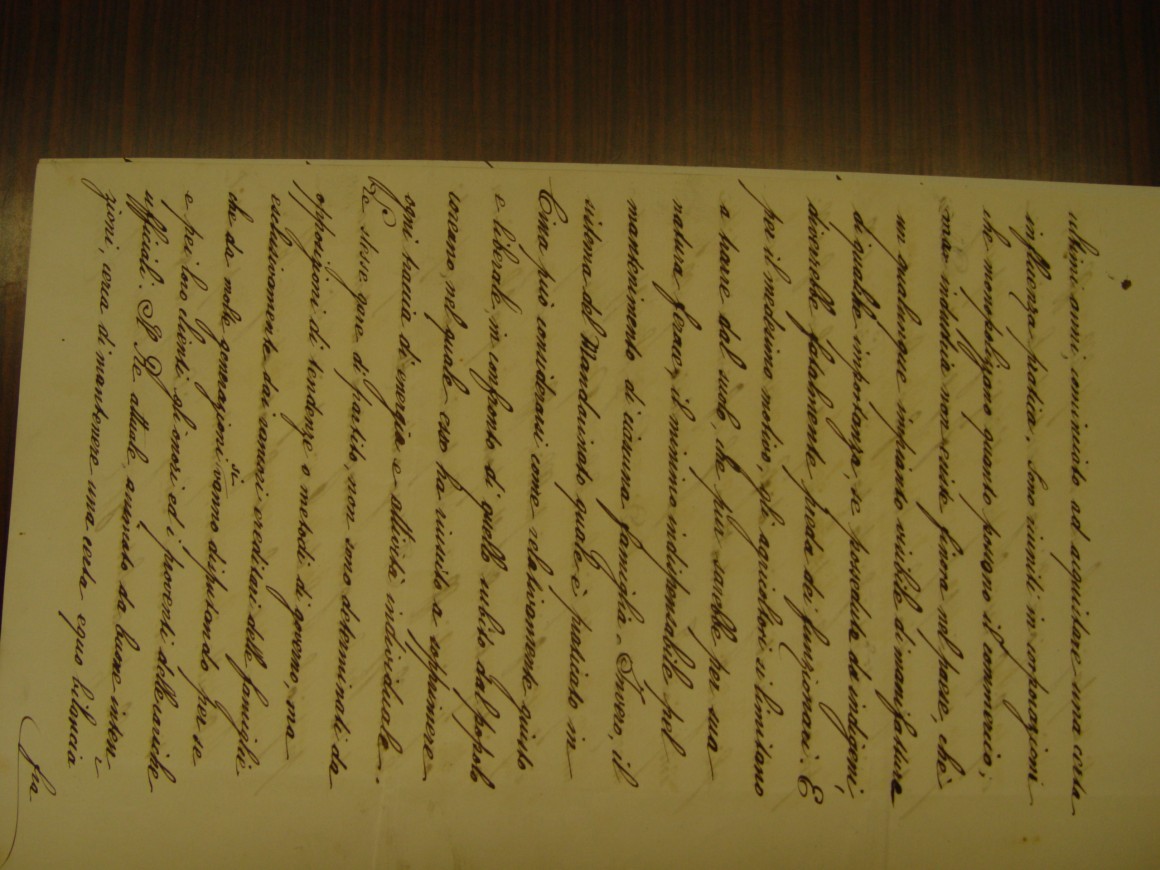 ultimi anni, cominciato ad acquistare una certa
influenza politica. Sono riuniti in corporazioni
che monopolizzano quanto possono il commercio;
ma industria non esiste finora nel paese, chè
un qualunque impianto visibile di manifatture
di qualche importanza, se posseduta da indigeni,
diverrebbe fatalmente preda dei funzionari. E
per il medesimo motivo, gli agricoltori si limitano
a trarre dal suolo, che pur sarebbe per sua
natura ferace, il minimo indispensabile pel
mantenimento di ciascuna famiglia. Invero, il
sistema del Mandarinato quale è praticato in
Cina può considerarsi come relativamente giusto
e liberale, in confronto di quello subito dal popolo
coreano, nel quale esso ha riuscito a opprimere
ogni traccia di energia e attività individuale.
Le stesse gare di partito, non sono determinate da
opposizioni di tendenze o metodi di governo, ma
esclusivamente dai rancori ereditari delle famiglie
che da molte generazioni si vanno disputando per se
e pei loro clienti gli onori ed i proventi delle cariche
ufficiali. Il Re attuale, animato da buone inten-
zioni, cerca di mantenere una certa equa bilancia
fra